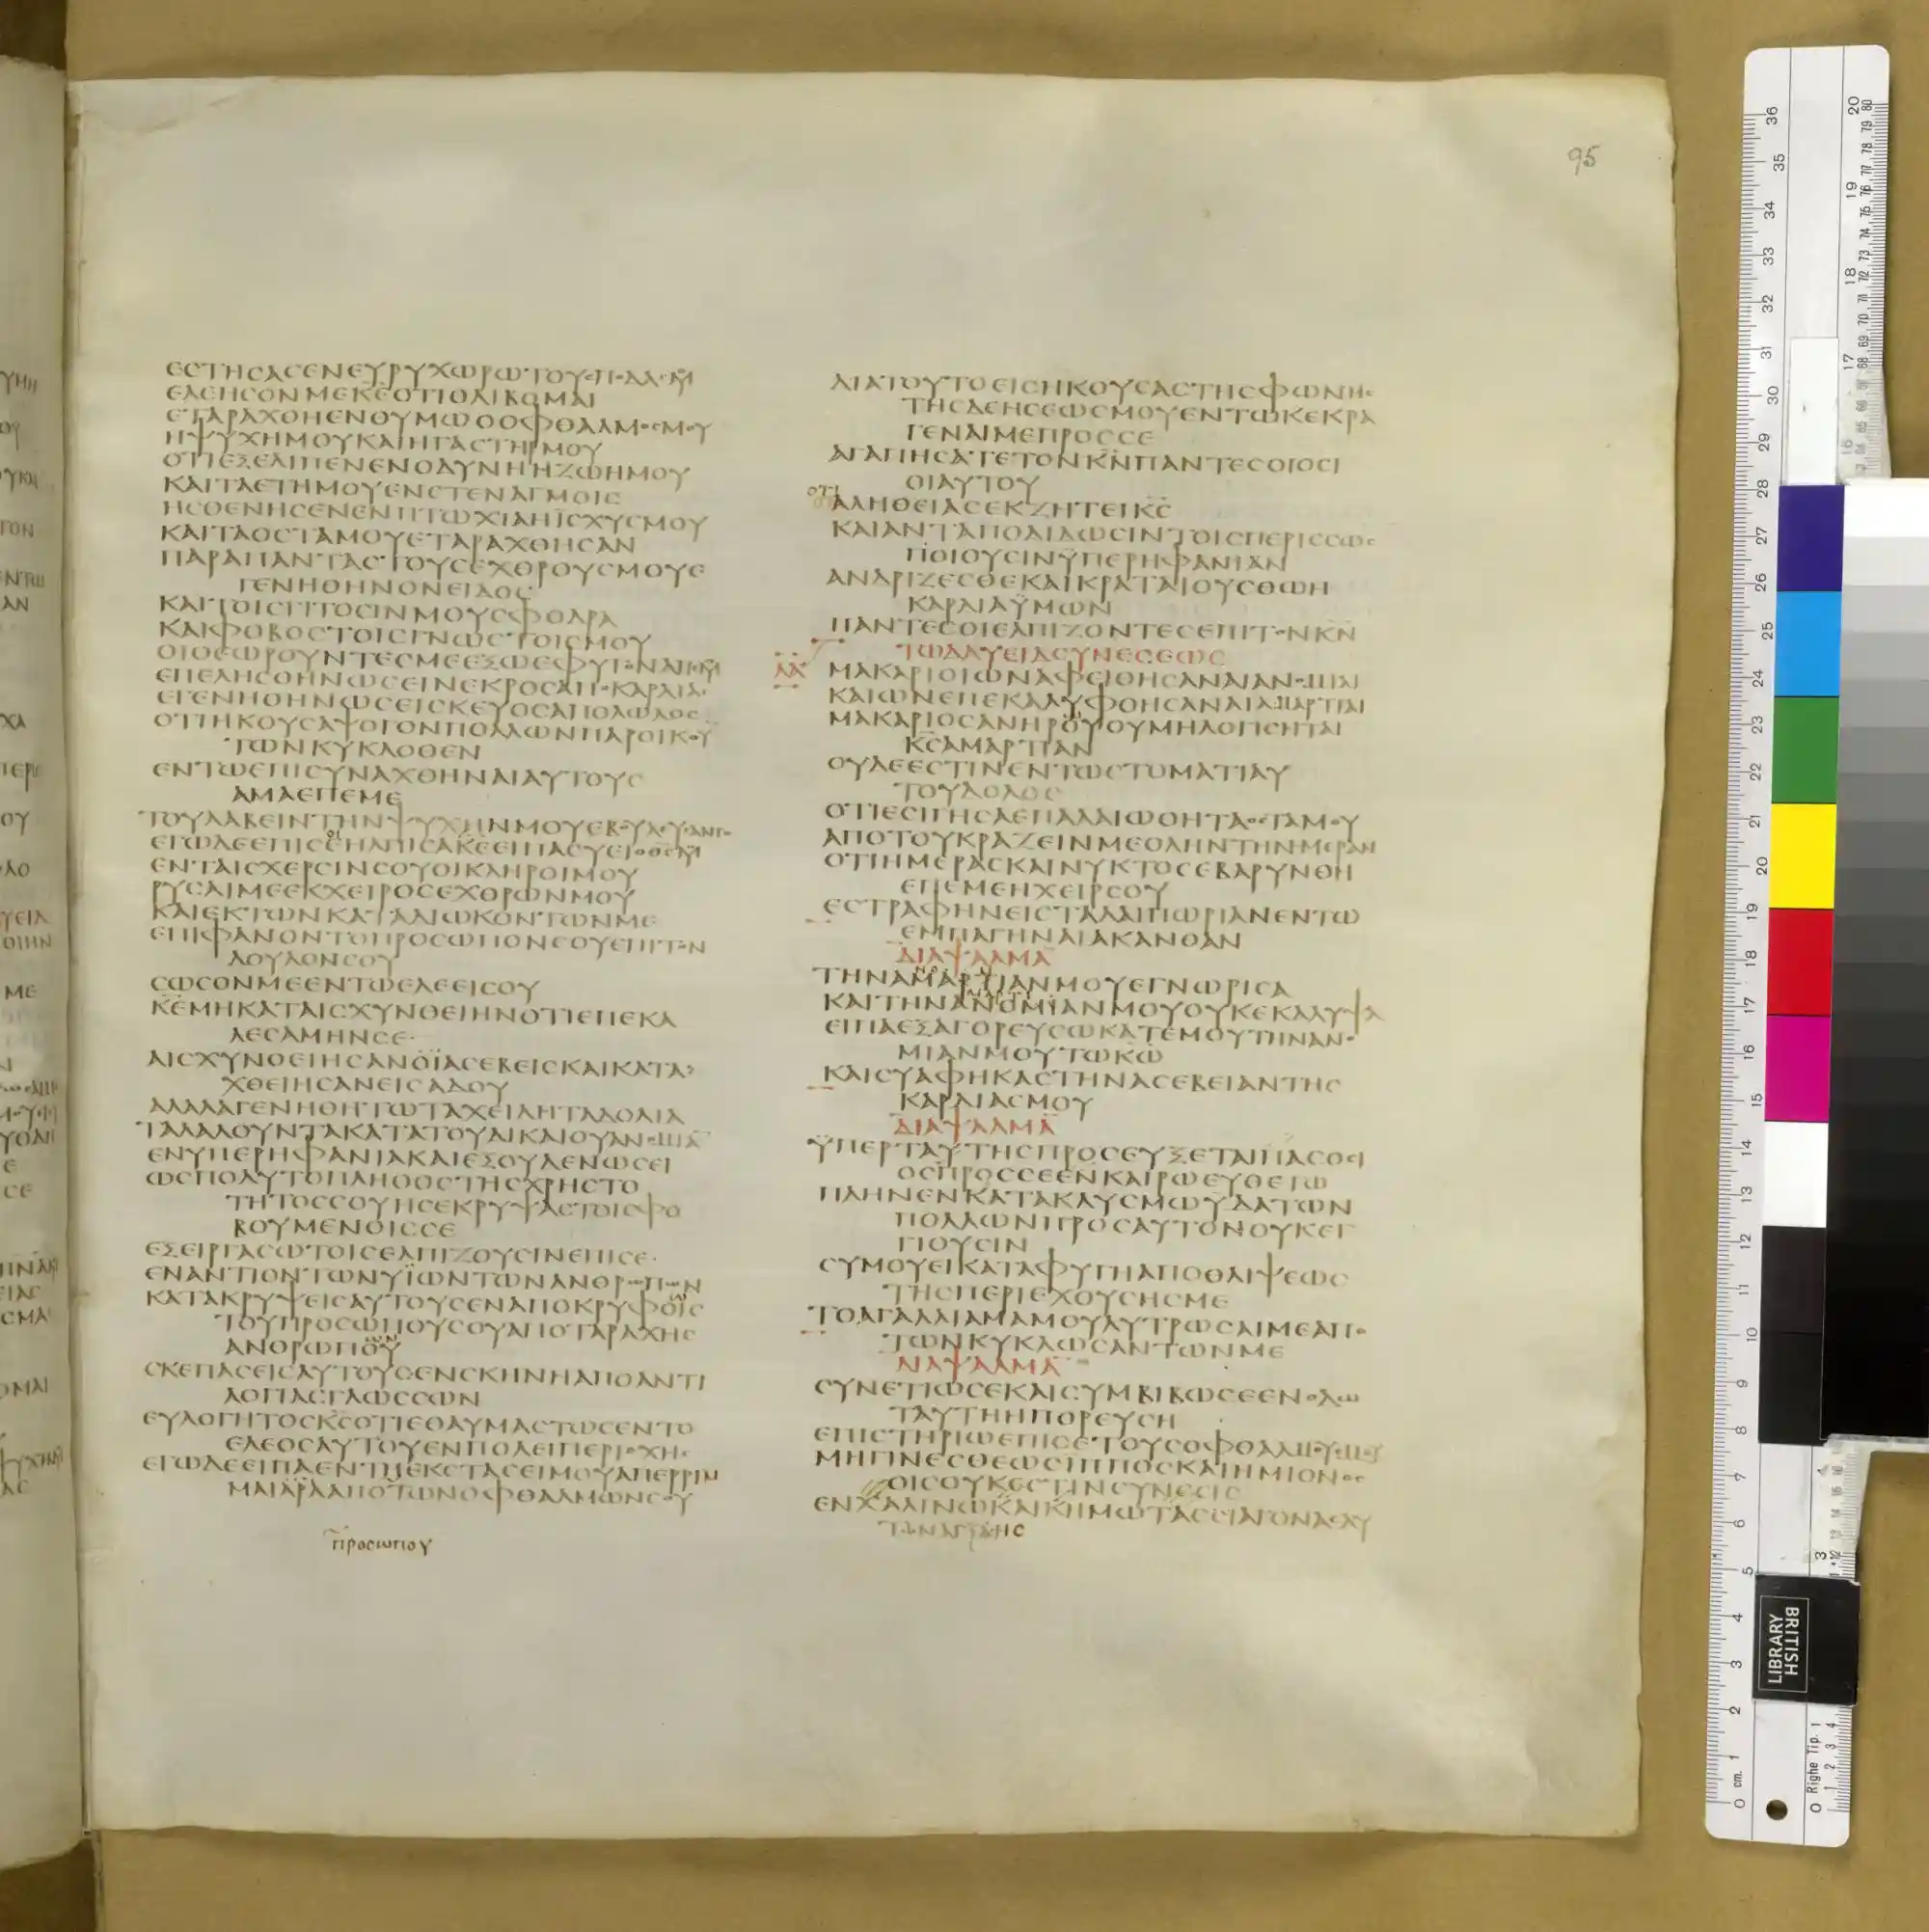 95
ΕϹΤΗϹΑϹΕΝΕΥΡΥΧΩΡΩΤΟΥϹΠΟΔΑϹΜΟΥ
ΕΛΕΗϹΟΝΜΕΚΕΟΤΙΘΛΙΒΟΜΑΙ
ΕΤΑΡΑΧΘΗΕΝΘΥΜΩΟΟΦΘΑΛΜΟϹΜΟΥ
ΗΨΥΧΗΜΟΥΚΑΙΗΓΑϹΤΗΡΜΟΥ
ΟΤΙΕΞΕΛΙΠΕΝΕΝΟΔΥΝΗΗΖΩΗΜΟΥ
ΚΑΙΤΑΕΤΗΜΟΥΕΝϹΤΕΝΑΓΜΟΙϹ
ΗϹΘΕΝΗϹΕΝΕΝΠΤΩΧΙΑΗΪϹΧΥϹΜΟΥ
ΚΑΙΤΑΟϹΤΑΜΟΥΕΤΑΡΑΧΘΗϹΑΝ
ΠΑΡΑΠΑΝΤΑϹΤΟΥϹΕΧΘΡΟΥϹΜΟΥΕ
ΓΕΝΗΘΗΝΟΝΕΙΔΟϹ
ΚΑΙΤΟΙϹΓΙΤΟϹΙΝΜΟΥϹΦΟΔΡΑ
ΚΑΙΦΟΒΟϹΤΟΙϹΓΝΩϹΤΟΙϹΜΟΥ
ΟΙΘΕΩΡΟΥΝΤΕϹΜΕΕΞΩΕΦΥΓΟΝΑΠΕΜΟΥ
ΕΠΕΛΗϹΘΗΝΩϹΕΙΝΕΚΡΟϹΑΠΟΚΑΡΔΙΑϹ
ΕΓΕΝΗΘΗΝΩϹΕΙϹΚΕΥΟϹΑΠΟΛΩΛΟϹ
ΟΤΙΗΚΟΥϹΑΨΟΓΟΝΠΟΛΛΩΝΠΑΡΟΙΚΟΥ
ΤΩΝΚΥΚΛΟΘΕΝ
ΕΝΤΩΕΠΙϹΥΝΑΧΘΗΝΑΙΑΥΤΟΥϹ
ΑΜΑΕΠΕΜΕ
ΤΟΥΛΑΒΕΙΝΤΗΝΨΥΧΗΝΜΟΥΕΒΟΥΛΕΥϹΑΝΤΟ
ΕΓΩΔΕΕΠΙϹΕΗΛΠΙϹΑΚΕΕΙΠΑϹΥΕΙΟΘϹΜΟΥ
ΕΝΤΑΙϹΧΕΡϹΙΝϹΟΥΟΙΚΛΗΡΟΙΜΟΥ
ΡΥϹΑΙΜΕΕΚΧΕΙΡΟϹΕΧΘΡΩΝΜΟΥ
ΚΑΙΕΚΤΩΝΚΑΤΑΔΙΩΚΟΝΤΩΝΜΕ
ΕΠΙΦΑΝΟΝΤΟΠΡΟϹΩΠΟΝϹΟΥΕΠΙΤΟΝ
ΔΟΥΛΟΝϹΟΥ
ϹΩϹΟΝΜΕΕΝΤΩΕΛΕΕΙϹΟΥ
ΚΕΜΗΚΑΤΑΙϹΧΥΝΘΕΙΗΝΟΤΙΕΠΕΚΑ
ΛΕϹΑΜΗΝϹΕ
ΑΙϹΧΥΝΘΕΙΗϹΑΝΟΪΑϹΕΒΕΙϹΚΑΙΚΑΤΑ
ΧΘΕΙΗϹΑΝΕΙϹΑΔΟΥ
ΑΛΑΛΑΓΕΝΗΘΗΤΩΤΑΧΕΙΛΗΤΑΔΟΛΙΑ
ΤΑΛΑΛΟΥΝΤΑΚΑΤΑΤΟΥΔΙΚΑΙΟΥΑΝΟΜΙΑ
ΕΝΥΠΕΡΗΦΑΝΙΑΚΑΙΕΞΟΥΔΕΝΩϹΕΙ
ΩϹΠΟΛΥΤΟΠΛΗΘΟϹΤΗϹΧΡΗϹΤΟ
ΤΗΤΟϹϹΟΥΗϹΕΚΡΥΨΑϹΤΟΙϹΦΟ
ΒΟΥΜΕΝΟΙϹϹΕ
ΕΞΕΙΡΓΑϹΩΤΟΙϹΕΛΠΙΖΟΥϹΙΝΕΠΙϹΕ
ΕΝΑΝΤΙΟΝΤΩΝΥΪΩΝΤΩΝΑΝΘΡΩΠΩΝ
ΚΑΤΑΚΡΥΨΕΙϹΑΥΤΟΥϹΕΝΑΠΟΚΡΥΦΟΙϹ
ΤΟΥΠΡΟϹΩΠΟΥϹΟΥΑΠΟΤΑΡΑΧΗϹ
ΑΝΘΡΩΠΟΥ
ϹΚΕΠΑϹΕΙϹΑΥΤΟΥϹΕΝϹΚΗΝΗΑΠΟΑΝΤΙ
ΛΟΓΙΑϹΓΛΩϹϹΩΝ
ΕΥΛΟΓΗΤΟϹΚϹΟΤΙΕΘΑΥΜΑϹΤΩϹΕΝΤΟ
ΕΛΕΟϹΑΥΤΟΥΕΝΠΟΛΕΙΠΕΡΙΟΧΗϹ
ΕΓΩΔΕΕΙΠΑΕΝΤΗΕΚϹΤΑϹΕΙΜΟΥΑΠΕΡΡΙΜ
ΜΑΙΑΡΑΑΠΟΤΩΝΟΦΘΑΛΜΩΝϹΟΥ
ΠΡΟϹΩΠΟΥ
ΔΙΑΤΟΥΤΟΕΙϹΗΚΟΥϹΑϹΤΗϹΦΩΝΗϹ
ΤΗϹΔΕΗϹΕΩϹΜΟΥΕΝΤΩΚΕΚΡΑ
ΓΕΝΑΙΜΕΠΡΟϹϹΕ
ΑΓΑΠΗϹΑΤΕΤΟΝΚΝΠΑΝΤΕϹΟΙΟϹΙ
ΟΙΑΥΤΟΥ
ΟΤΙ
ΑΛΗΘΕΙΑϹΕΚΖΗΤΕΙΚϹ
ΚΑΙΑΝΤΑΠΟΔΙΔΩϹΙΝΤΟΙϹΠΕΡΙϹϹΩϹ
ΠΟΙΟΥϹΙΝΫΠΕΡΗΦΑΝΙΑΝ
ΑΝΔΡΙΖΕϹΘΕΚΑΙΚΡΑΤΑΙΟΥϹΘΩΗ
ΚΑΡΔΙΑΫΜΩΝ
ΠΑΝΤΕϹΟΙΕΛΠΙΖΟΝΤΕϹΕΠΙΤΟΝΚΝ
ΤΩΔΑΥΕΙΔϹΥΝΕϹΕΩϹ
ΛΑ
ΜΑΚΑΡΙΟΙΩΝΑΦΕΙΘΗϹΑΝΑΙΑΝΟΜΙΑΙ
ΚΑΙΩΝΕΠΕΚΑΛΥΦΘΗϹΑΝΑΙΑΜΑΡΤΙΑΙ
ΜΑΚΑΡΙΟϹΑΝΗΡΟΥΟΥΜΗΛΟΓΙϹΗΤΑΙ
ΚϹΑΜΑΡΤΙΑΝ
ΟΥΔΕΕϹΤΙΝΕΝΤΩϹΤΟΜΑΤΙΑΥ
ΤΟΥΔΟΛΟϹ
ΟΤΙΕϹΙΓΗϹΑΕΠΑΛΑΙΩΘΗΤΑΟϹΤΑΜΟΥ
ΑΠΟΤΟΥΚΡΑΖΕΙΝΜΕΟΛΗΝΤΗΝΗΜΕΡΑΝ
ΟΤΙΗΜΕΡΑϹΚΑΙΝΥΚΤΟϹΕΒΑΡΥΝΘΗ
ΕΠΕΜΕΗΧΕΙΡϹΟΥ
ΕϹΤΡΑΦΗΝΕΙϹΤΑΛΑΙΠΩΡΙΑΝΕΝΤΩ
ΕΜΠΑΓΗΝΑΙΑΚΑΝΘΑΝ
ΔΙΑΨΑΛΜΑ
ΤΗΝΑΜΑΡΤΙΑΝΜΟΥΕΓΝΩΡΙϹΑ
ΚΑΙΤΗΝΑΝΟΜΙΑΝΜΟΥΟΥΚΕΚΑΛΥΨΑ
ΕΙΠΑΕΞΑΓΟΡΕΥϹΩΚΑΤΕΜΟΥΤΗΝΑΝΟ
ΜΙΑΝΜΟΥΤΩΚΩ
ΚΑΙϹΥΑΦΗΚΑϹΤΗΝΑϹΕΒΕΙΑΝΤΗϹ
ΚΑΡΔΙΑϹΜΟΥ
ΔΙΑΨΑΛΜΑ
ΫΠΕΡΤΑΥΤΗϹΠΡΟϹΕΥΞΕΤΑΙΠΑϹΟϹΙ
ΟϹΠΡΟϹϹΕΕΝΚΑΙΡΩΕΥΘΕΤΩ
ΠΛΗΝΕΝΚΑΤΑΚΛΥϹΜΩΫΔΑΤΩΝ
ΠΟΛΛΩΝΠΡΟϹΑΥΤΟΝΟΥΚΕΓ
ΓΙΟΥϹΙΝ
ϹΥΜΟΥΕΙΚΑΤΑΦΥΓΗΑΠΟΘΛΙΨΕΩϹ
ΤΗϹΠΕΡΙΕΧΟΥϹΗϹΜΕ
ΤΟΑΓΑΛΛΙΑΜΑΜΟΥΛΥΤΡΩϹΑΙΜΕΑΠΟ
ΤΩΝΚΥΚΛΩϹΑΝΤΩΝΜΕ
ΔΙΑΨΑΛΜΑ
ϹΥΝΕΤΙΩϹΕΚΑΙϹΥΜΒΙΒΩϹΕΕΝΟΔΩ
ΤΑΥΤΗΗΠΟΡΕΥϹΗ
ΕΠΙϹΤΗΡΙΩΕΠΙϹΕΤΟΥϹΟΦΘΑΛΜΟΥϹΜΟΥ
ΜΗΓΙΝΕϹΘΕΩϹΙΠΠΟϹΚΑΙΗΜΙΟΝΟϹ
ΟΙϹΟΥΚΕϹΤΙΝϹΥΝΕϹΙϹ
ΕΝΧΑΛΙΝΩΚΑΙΚΗΜΩΤΑϹϹΙΑΓΟΝΑϹΑΥ
ΤΩΝΑΓΞΗϹ